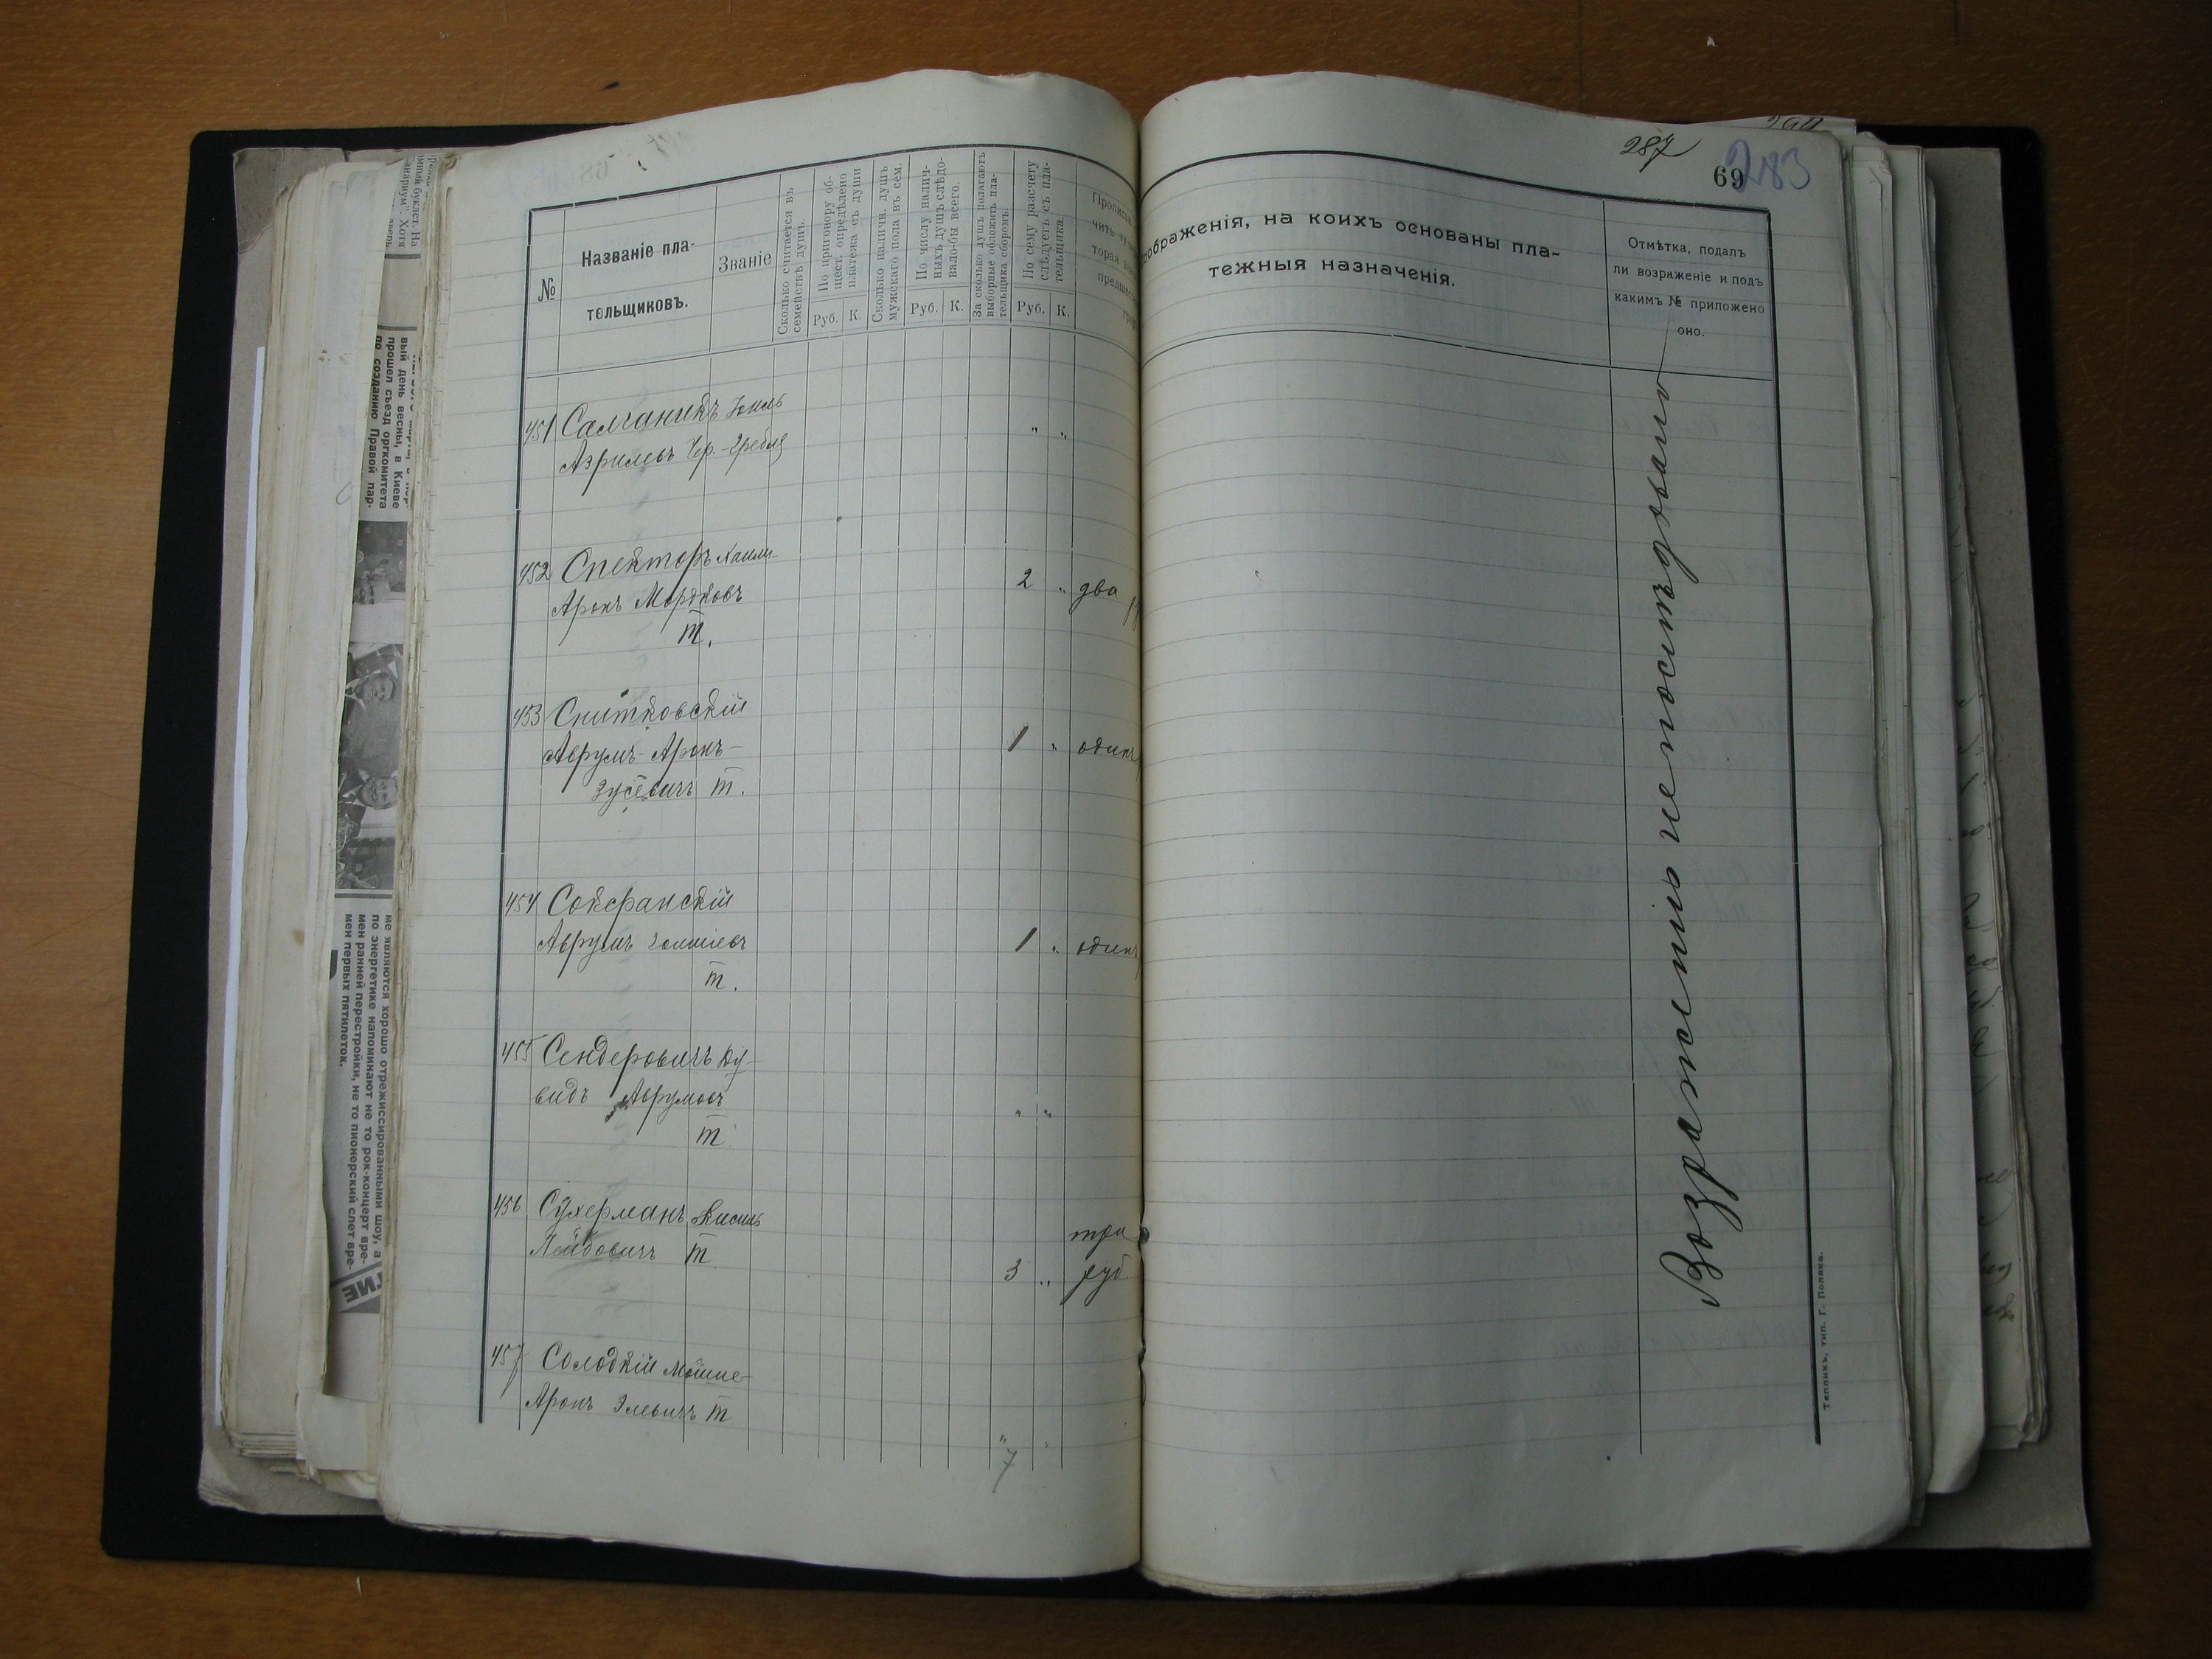 287
69
283
290
№
Названіе пла-
тельщиковъ.
Званіе
Сколько считается въ
семействѣ душъ.
По приговору об-
щест. опредѣлено
платежа съ души
Руб. К.
Сколько наличн. душъ
мужскаго пола въ сем.
По числу налич-
ныхъ душъ слѣдо-
вало-бы всего.
Руб. К.
За сколько душъ полагаютъ
выборные обложить пла-
тельщика сборомъ.
По сему разсчету
слѣдуетъ съ пла-
тельщика.
Руб. К.
ображенія, на коихъ основаны пла-
тежныя назначенія.
Отмѣтка, подалъ
ли возраженіе и подъ
какимъ № приложено
оно.
451 Салганикъ Юиль
Азрилевъ Чер.-Гребля " "
452 Спекторъ Хаим-
Аронъ Мордковъ 2 " два
т.
453 Снитковскій
Аврумъ-Аронъ- 1 " одинъ
Зусевичъ т.
454 Соферанскій
Аврумъ 1 " одинъ
т.
455 Сендеровичъ Ду-
видъ Аврумовъ " "
т.
456 Сухерманъ Кисиль три
Лейбовичъ т. 3 " руб.
457 Солодкій Мошне-
Аронъ Элевичъ т " "
7
Возраженіь не послѣдовало
Тепликъ, тип. Г. Поляка.
вый день весны, в Киеве
прошел съезд оргкомитета
по созданию Правой пар-
ме являются хорошо отрежиссированными шоу, а
по энергетике напоминают не то рок-концерт вре-
мен ранней перестройки, не то пионерский слет вре-
мен первых пятилеток.